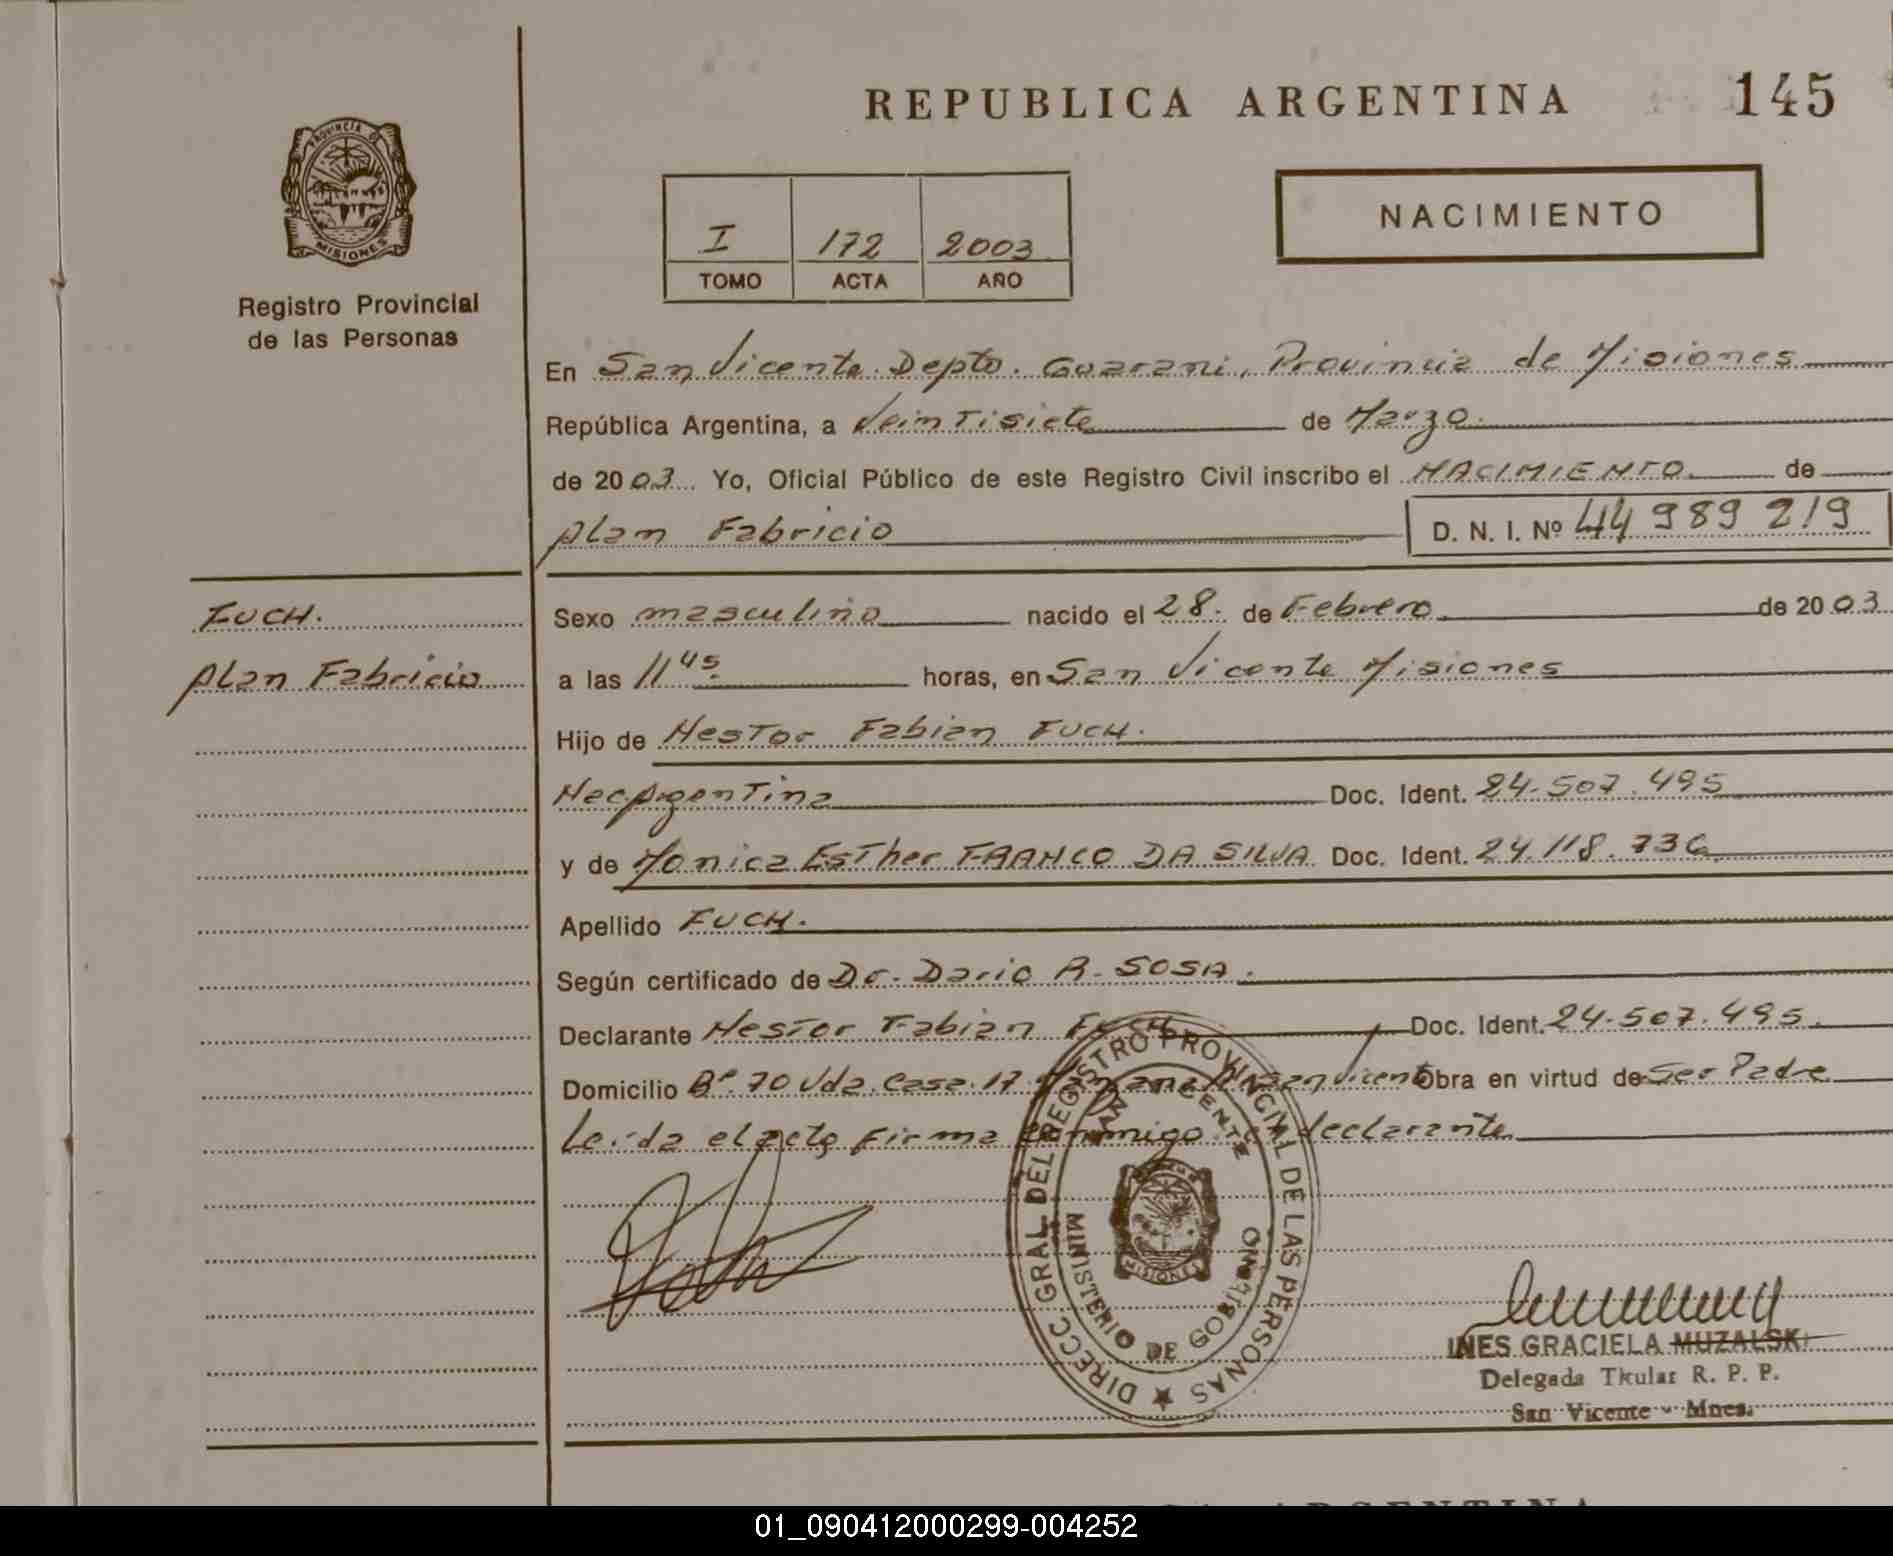 REPUBLICA ARGENTINA 145
PROVINCIA DE
MISIONES
Registro Provincial
de las Personas
I 172 2003
TOMO ACTA AÑO
NACIMIENTO
En San Vicente Depto. Guarani, Provincia de Misiones
República Argentina, a Veintisiete de Marzo.
de 2003 Yo, Oficial Público de este Registro Civil inscribo el NACIMIENTO de
Alan Fabricio D. N. I. Nº 44 989 219
FUCH.
Alan Fabricio
Sexo masculino nacido el 28. de Febrero de 2003
a las 11 45 horas, en San Vicente Misiones
Hijo de Hestor Fabian FUCH.
Nac Argentina Doc. Ident. 24.507.495
y de Monica Esther FRANCO DA SILVA Doc. Ident. 24.118.736
Apellido FUCH.
Según certificado de Dr. Dario R. SOSA.
Declarante Hestor Fabian FUCH Doc. Ident. 24.507.495.
Domicilio Bº 70 Vda. Casa 17 San Vicente Obra en virtud de Ser Padre
Leida el acta firma conmigo el declarante
DIRECC GRAL DEL REGISTRO PROVINCIAL DE LAS PERSONAS
SAN VICENTE
MISIONES
MINISTERIO DE GOBIERNO
INES GRACIELA MUZALSKI
Delegada Titular R. P. P.
San Vicente - Mnes.
ARGENTINA
01_090412000299-004252